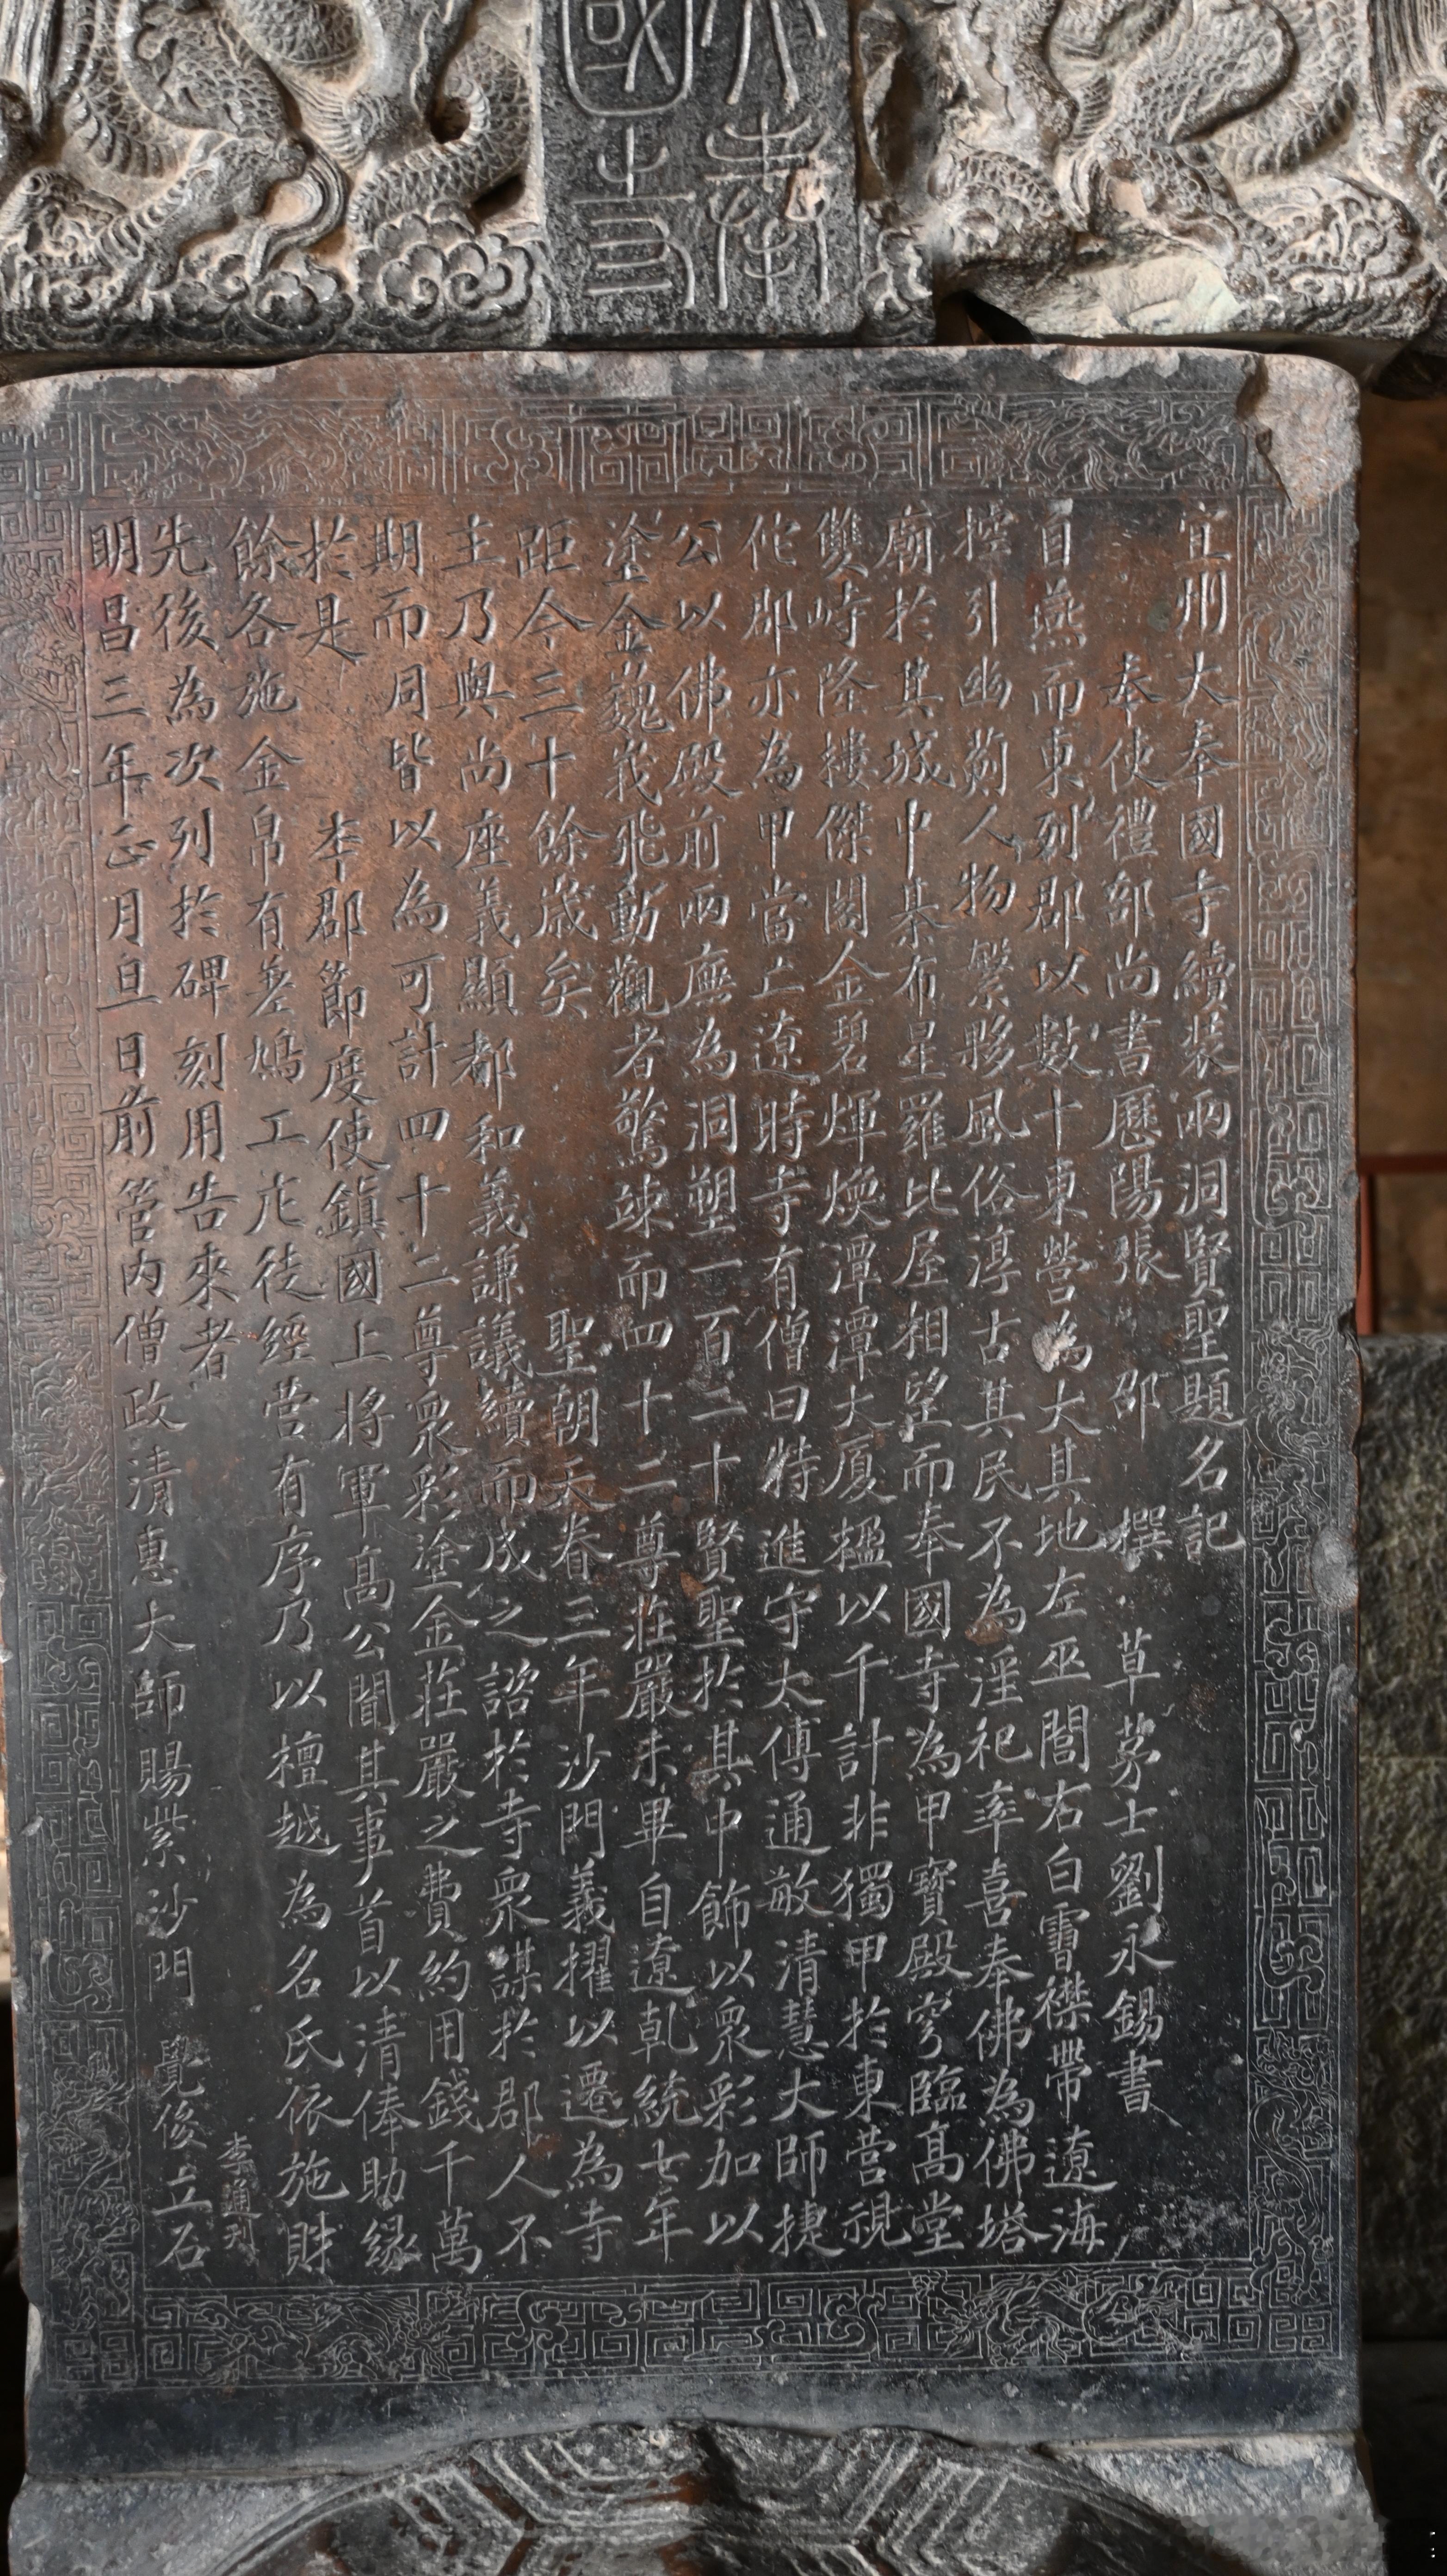 大奉
國寺
宜州大奉國寺續裝兩洞賢聖題名記
奉使禮部尚書歷陽張 邵 撰 草茅士劉永錫書
自燕而東列郡以數十東營為大其地左巫閭右白霫襟帶遼海
控引幽薊人物繁夥風俗淳古其民不為淫祀率喜奉佛為佛塔
廟於其城中棊布星羅比屋相望而奉國寺為甲寶殿穹臨高堂
雙峙隆樓傑閣金碧煇煥潭潭大廈楹以千計非獨甲於東營視
佗郡亦為甲當亡遼時寺有僧曰特進守太傅通敏清慧大師捷
公以佛殿前兩廡為洞塑一百二十賢聖於其中飾以眾彩加以
塗金巍峩飛動觀者驚竦而四十二尊莊嚴未畢自遼乹統七年
距今三十餘歲矣 聖朝天眷三年沙門義擢以遷為寺
主乃與尚座義顯都和義謙議續而成之諮於寺眾謀於郡人不
期而同皆以為可計四十二尊眾彩塗金莊嚴之費約用錢千萬
於是 本郡節度使鎮國上將軍高公聞其事首以清俸助緣
餘各施金帛有差鳩工庀徒經營有序乃以檀越為名氏依施財
先後為次列於碑刻用告來者 李通刊
明昌三年正月旦日前管內僧政清惠大師賜紫沙門 覺俊立石